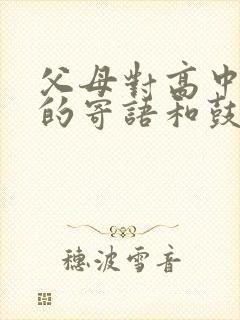 父母對高中
的寄語和鼓
穗波雪音